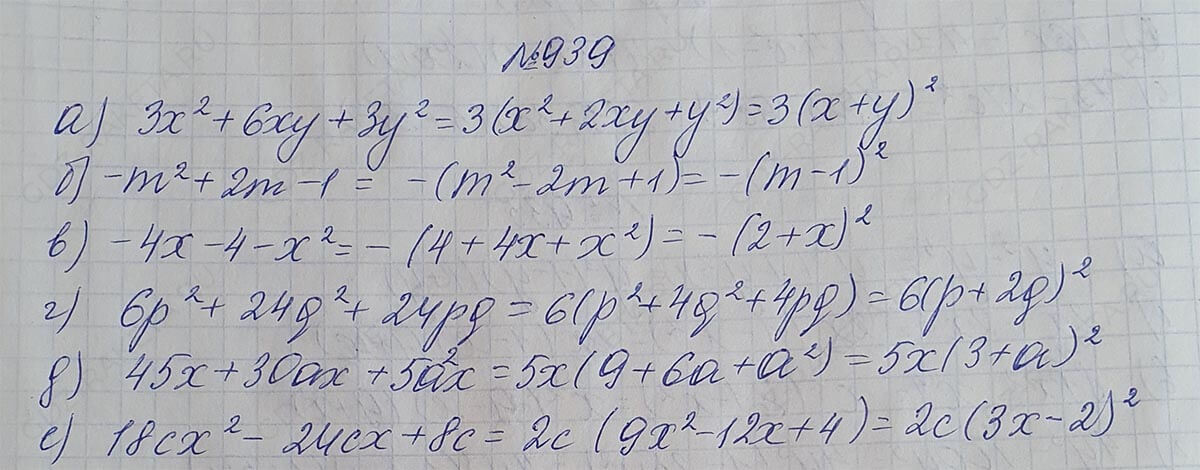 №939
а) 3x² + 6xy + 3y² = 3(x² + 2xy + y²) = 3(x + y)²
б) -m² + 2m - 1 = -(m² - 2m + 1) = -(m - 1)²
в) -4x - 4 - x² = -(4 + 4x + x²) = -(2 + x)²
г) 6p² + 24q² + 24pq = 6(p² + 4q² + 4pq) = 6(p + 2q)²
д) 45x + 30ax + 5a²x = 5x(9 + 6a + a²) = 5x(3 + a)²
е) 18cx² - 24cx + 8c = 2c (9x² - 12x + 4) = 2c(3x - 2)²